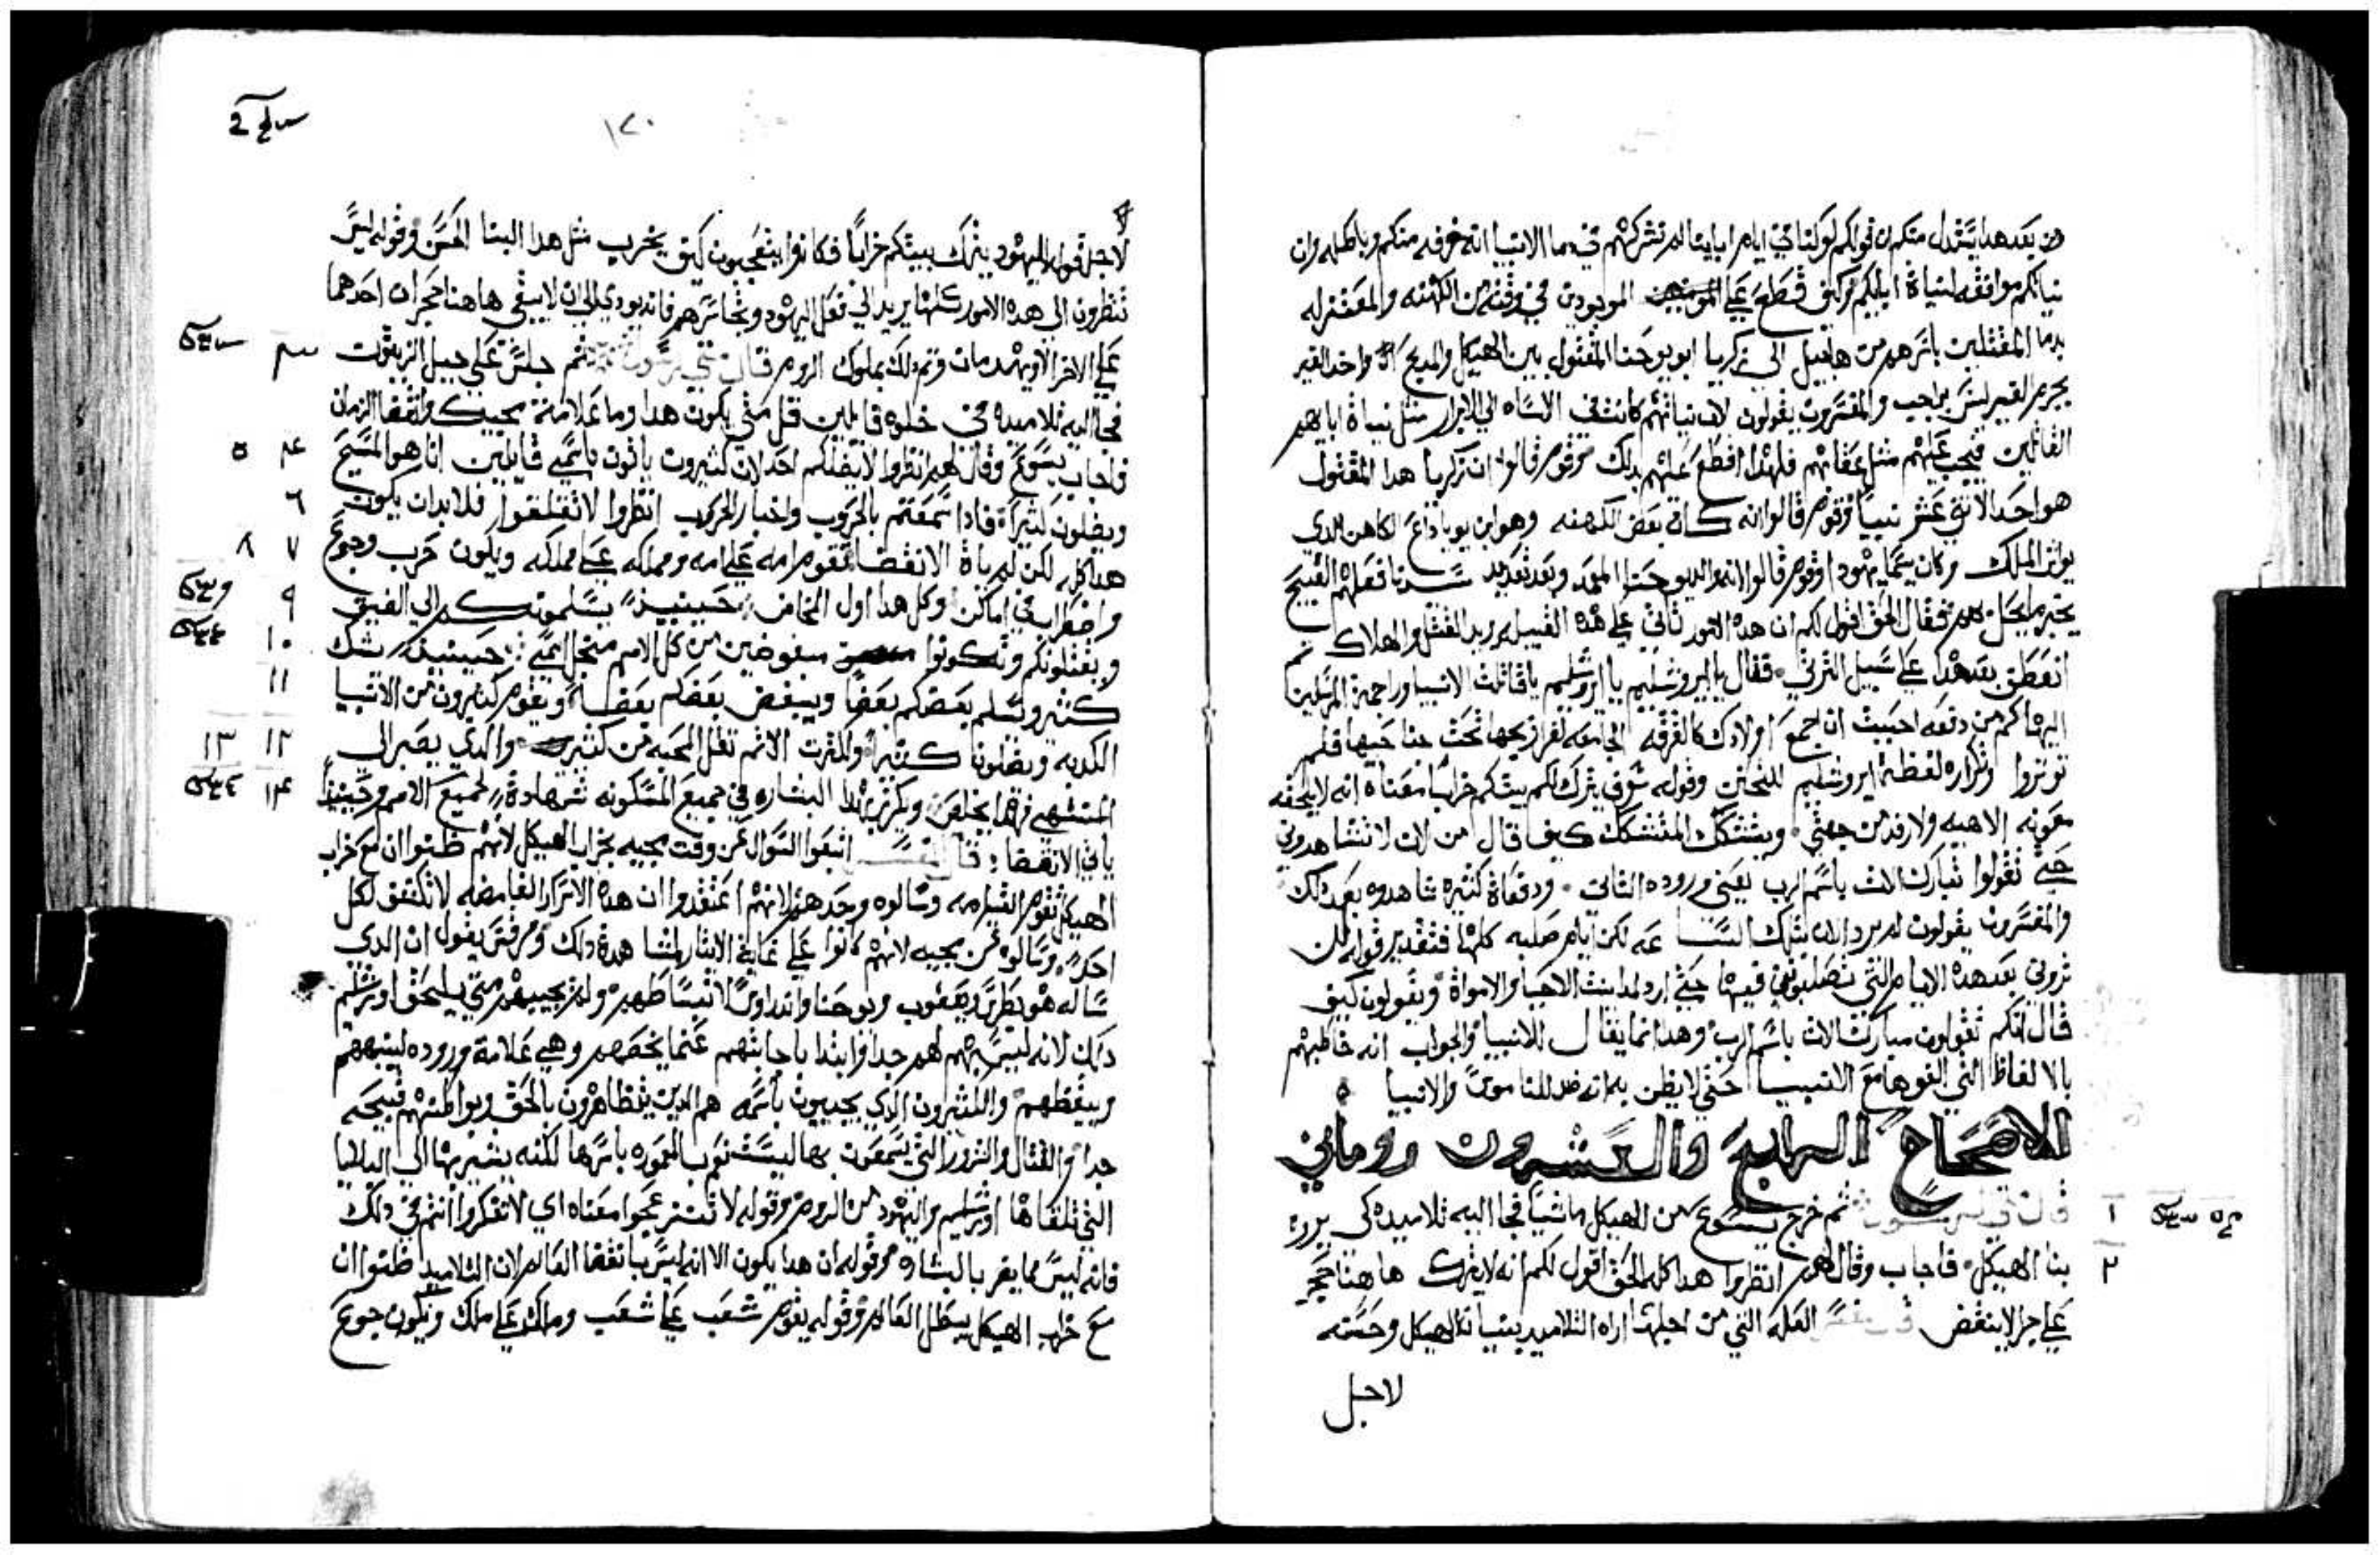 من بعد هدا يستدل منكم ان قولكم لو كنا في ايام ابايتا لم نشركهم في دما الانبيا انه خرفه منكم وباطله وان
نياتكم موافقه لنياة ابايكم وكيف قطع علي الموجودين في وقته من الكهنه والمعتزله
بدما المقتلين باسرهم من هابيل الي زكريا ابو يوحنا المقتول بين الهيكل والمدبح واخد الغير
بجرم الغير ليس بواجب والمفسرون يقولون لان نياتهم كانت في الاساه الي الابرار مثل نياة اباهم
القاتلين فيجب عليهم مثل عقابهم فلهدا قطع عليهم بدلك وقوم قالوا ان زكريا هدا المقتول
هو احد الاثني عشر نبيا وقوم قالوا انه كان بعض الكهنه وهو ابن يوياداع الكاهن الدي
يواش الملك وكان يسما يهودا وقوم قالوا انه والد يوحنا المعمد وبعد تعديد سيدنا فعلهم القبيح
يخبر ما يحل بهم فقال الحق اقول لكم ان هده الامور تاتي علي هده القبيله يريد القتل والهلاك ثم
انعطف بعد هدا علي سبيل الترثي فقال يا ايروشليم يا ايروشليم يا قاتلت الانبيا وراجمة المرسلين
اليها كم من دفعه احببت ان اجمع اولادك كالفرقه الجامعه لفراريجها تحت جناحيها فلم
توتروا وتكراره لفظة ايروشليم للتحنن وقوله سوف يترك لكم بيتكم خرابا معناه انه لا يلحقه
معونه الاهيه ولا رفد من جهتي ويتشكك المتشكك كيف قال من الان لا تشاهدوني
حتي تقولوا تبارك الات باسم الرب يعني وروده الثاني ودفعاة كثيره شاهدوه بعد دلك
والمفسرون يقولون لم يرد الان بتلك الساعه لكن ايام صلبه كلها فتقدير قوله لن
تروني بعد هده الايام التي تصلبوني فيها حتي ارد لمداينت الاحيا والامواة ويقولون كيف
قال انكم تقولون مبارك الات باسم الرب وهدا انما يقال للانبيا والجواب انه خاطبهم
بالالفاظ التي الفوها مع الانبيا حتي لا يظن به انه ضد للناموس والانبيا
الاصحاح الرابع والعشرون روماني
١ قال ثم خرج يسوع من الهيكل ماشيا فجا اليه تلاميده كي يروه
٢ بنا الهيكل فاجاب وقال لهم انظروا هدا كله الحق اقول لكم انه لا يترك هاهنا حجر
علي حجر لا ينقض العله التي من اجلها اراه التلاميد بنيان الهيكل وحسنه
لاجل
١٢٠
لاجل قوله لليهود يترك بيتكم خرابا فكانوا يتعجبون كيف يخرب مثل هدا البنا الحسن وقوله ليس
تنظرون الي هده الامور كلها يريد الي فعل اليهود وتجاسرهم فانه يودي الي ان لا يبقي هاهنا حجران احدهما
علي الاخر الا ويهدمان وتم دلك بملوك الروم قال متي ثم جلس علي جبل الزيتون
فجا اليه تلاميده في خلوه قايلين قل متي يكون هدا وما علامة مجيك وانقضا الزمان
فاجاب يسوع وقال لهم انظروا لا يضلكم احد لان كثيرون ياتون باسمي قايلين انا هو المسيح
ويضلون كثيراة فادا سمعتم بالحروب واخبار الحروب انظروا لا تقلقوا فلا بد ان يكون
هدا كله لكن لم ياة الانقضا تقوم امه علي امه ومملكه علي مملكه ويكون حرب وجوع
واضطراب في اماكن وكل هدا اول المخاض حينيد يسلمونكم الي الضيق
ويقتلونكم وتكونوا مبغوضين من كل الامم من اجل اسمي حينيد يشك
كثير ويسلم بعضكم بعضا ويبغض بعضكم بعضا ويقوم كثيرون من الانبيا
الكدبه ويضلون كثيرا ولكثرت الاثم تقل المحبه من كثير والدي يصبر الي
المنتهي فهدا يخلص ويكرز بهدا البشاره في جميع المسكونه شهادة لجميع الامم وحينيدا
ياتي الانقضا قال المفسر اتبعوا السوال عن وقت مجيه بخراب الهيكل لانهم ظنوا ان مع خراب
الهيكل تقوم القيامه وسالوه وحدهم لانهم اعتقدوا ان هده الاسرار الغامضه لا تكشف لكل
احد وسالوه عن مجيه لانهم كانوا علي غاية الايثار لمشاهدة دلك ومرقس يقول ان الدي
ساله هو بطرس ويعقوب ويوحنا واندراوس لانبساطهم ولم يجيبهم متي يلحق اورشليم
دلك لانه ليس بمهم لهم جدا وابتدا باجابتهم عما يخصهم وهي علامة وروده لينبههم
ويعظهم والكثيرون الدي يجيون باسمه هم الدين يتظاهرون بالحق وبواطنهم قبيحه
جدا والقتال والشرور التي يسمعون بها ليست نوب المعموره باسرها لكنه يشير بها الي البلايا
التي تلقاها اورشليم واليهود من الروم وقوله لا تنزعجوا معناه اي لا تفكروا انتم في دلك
فانه ليس مما يضر بالبشاره وقوله ان هدا يكون الا انه ليس بانقضا العالم لان التلاميد ظنوا ان
مع خراب الهيكل يبطل العالم وقوله يقوم شعب علي شعب وملك علي ملك ويكون جوع